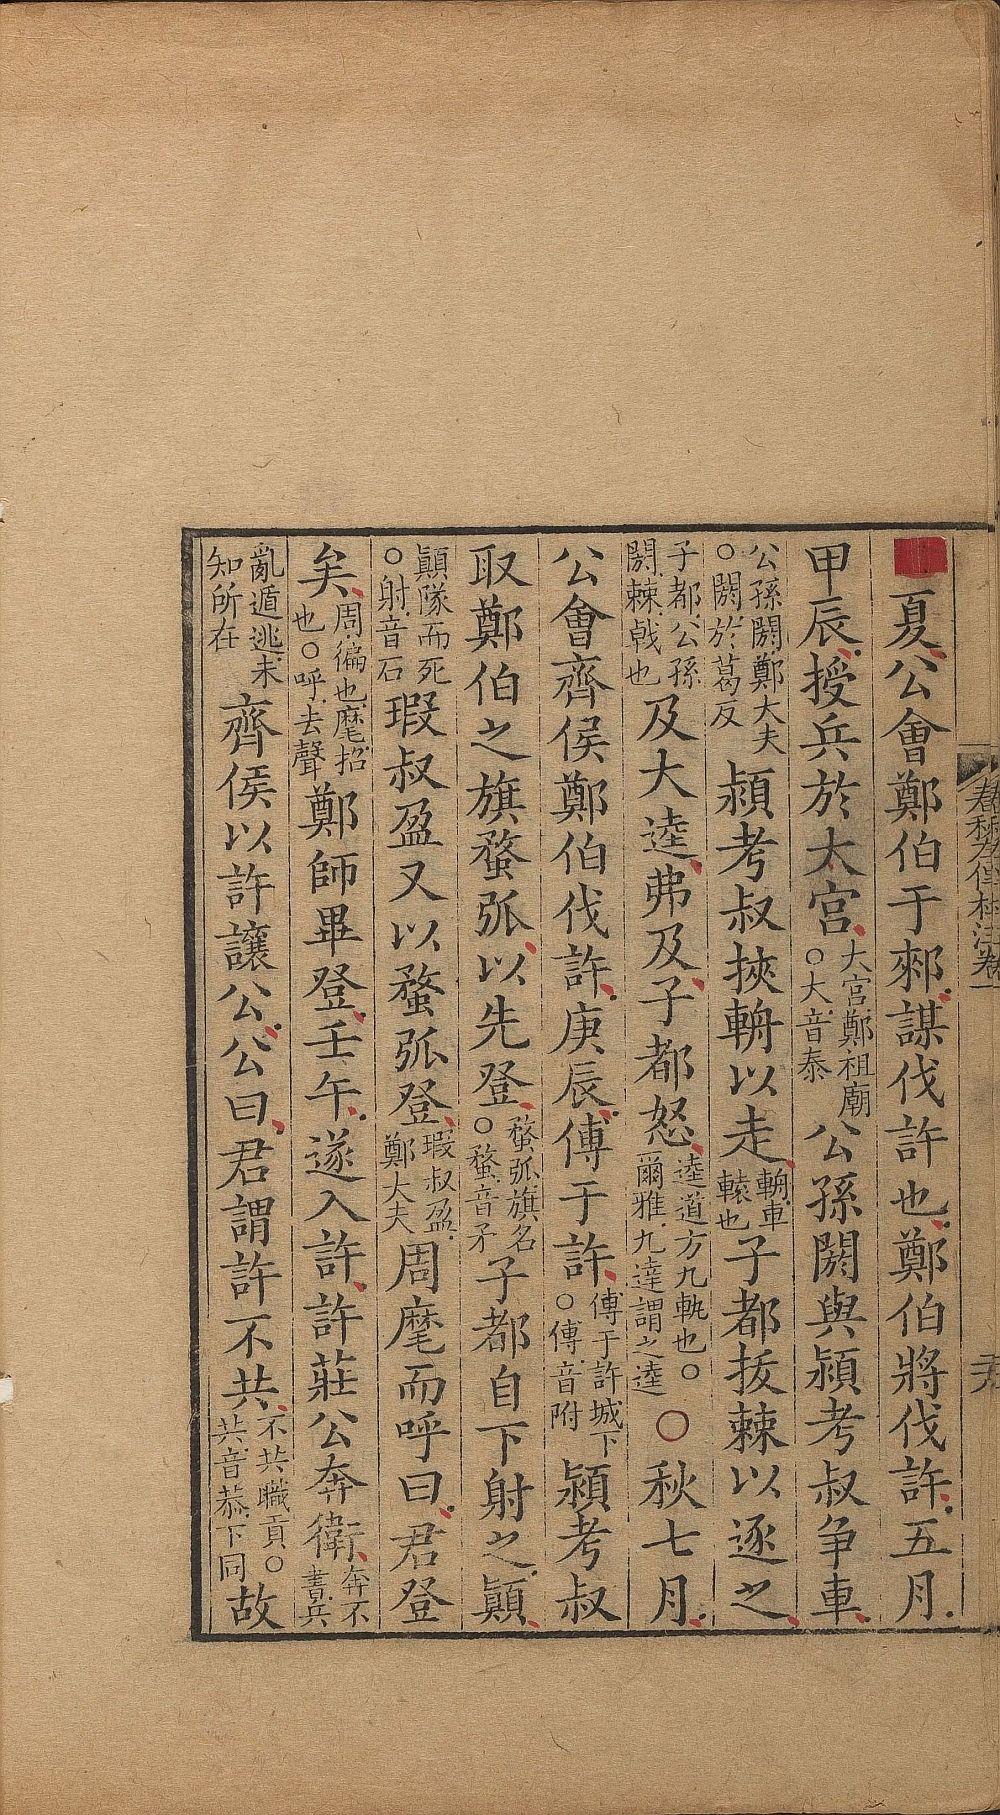 夏公會鄭伯于郲謀伐許也鄭伯將伐許五月
甲辰授兵於大宮大宮鄭祖廟○大音泰公孫閼與潁考叔争車
公孫閼鄭大夫○閼於葛反潁考叔挾輈以走輈車轅也子都拔棘以逐之
子都公孫閼棘戟也及大逵弗及子都怒逵道方九軌也○爾雅九達謂之逵○秋七月
公會齊侯鄭伯伐許庚辰傅于許傅于許城下○傅音附潁考叔
取鄭伯之旗蝥弧以先登蝥弧旗名○蝥音矛子都自下射之顚
顚隊而死○射音石瑕叔盈又以蝥弧登瑕叔盈鄭大夫周麾而呼曰君登
矣周徧也麾招也○呼去聲鄭師畢登壬午遂入許許莊公奔衛奔不書兵
亂遁逃未知所在齊侯以許讓公公曰君謂許不共不共職貢○共音恭下同故
春秋左傳杜注卷一